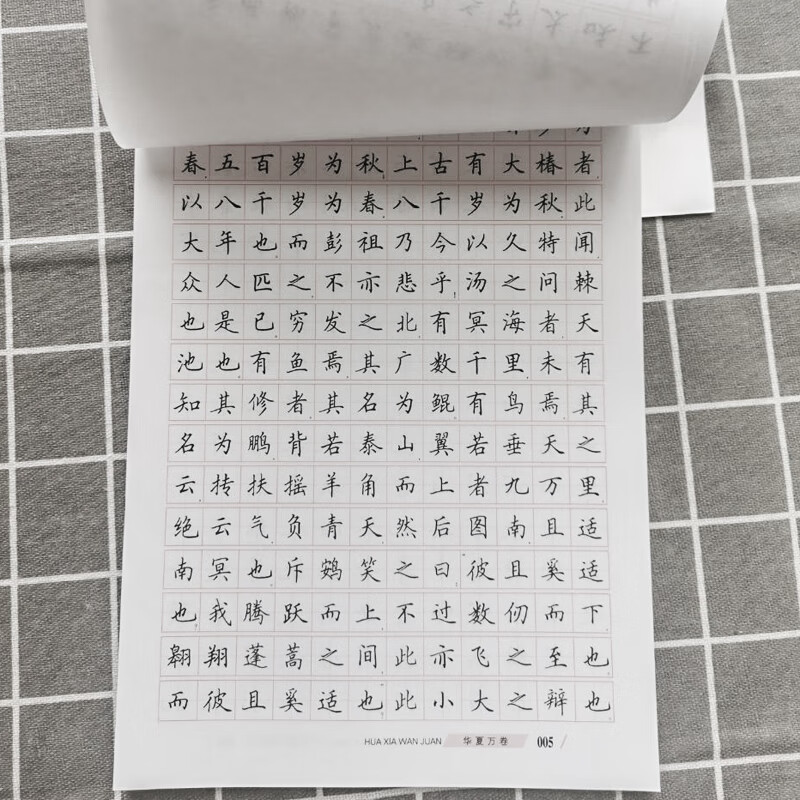 春五百岁为秋上古有大椿者
以八千岁为春八千岁为秋此
大年也而彭祖乃今以久特闻
众人匹之不亦悲乎汤之问棘
也是已穷发之北有冥海者天
池也有鱼焉其广数千里未有
知其修者其名为鲲有鸟焉其
名为鹏背若泰山翼若垂天之
云抟扶摇羊角而上者九万里
绝云气负青天然后图南且适
南冥也斥鴳笑之曰彼且奚适
也我腾跃而上不过数仞而下
翱翔蓬蒿之间此亦飞之至也
而彼且奚适也此小大之辩也
HUA XIA WAN JUAN 华夏万卷 005